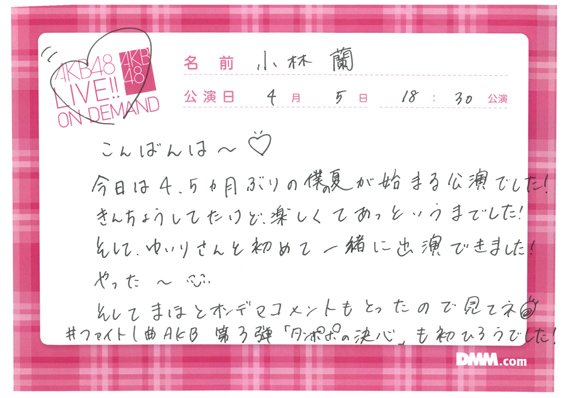 AKB48
LIVE!!
ON DEMAND
AKB
48
名前 小林 蘭
公演日 4月 5日 18:30 公演
こんばんは〜♡
今日は4.5ヵ月ぶりの僕の夏が始まる公演でした!
きんちょうしてたけど、楽しくてあっというまでした!
そして、ゆいりさんと初めて一緒に出演できました!
やった〜
そしてまほとオンデマコメントもとったので見てネ
#ファイト1曲AKB 第3弾「タンポポの決心」も初ひろうでした!
DMM.com